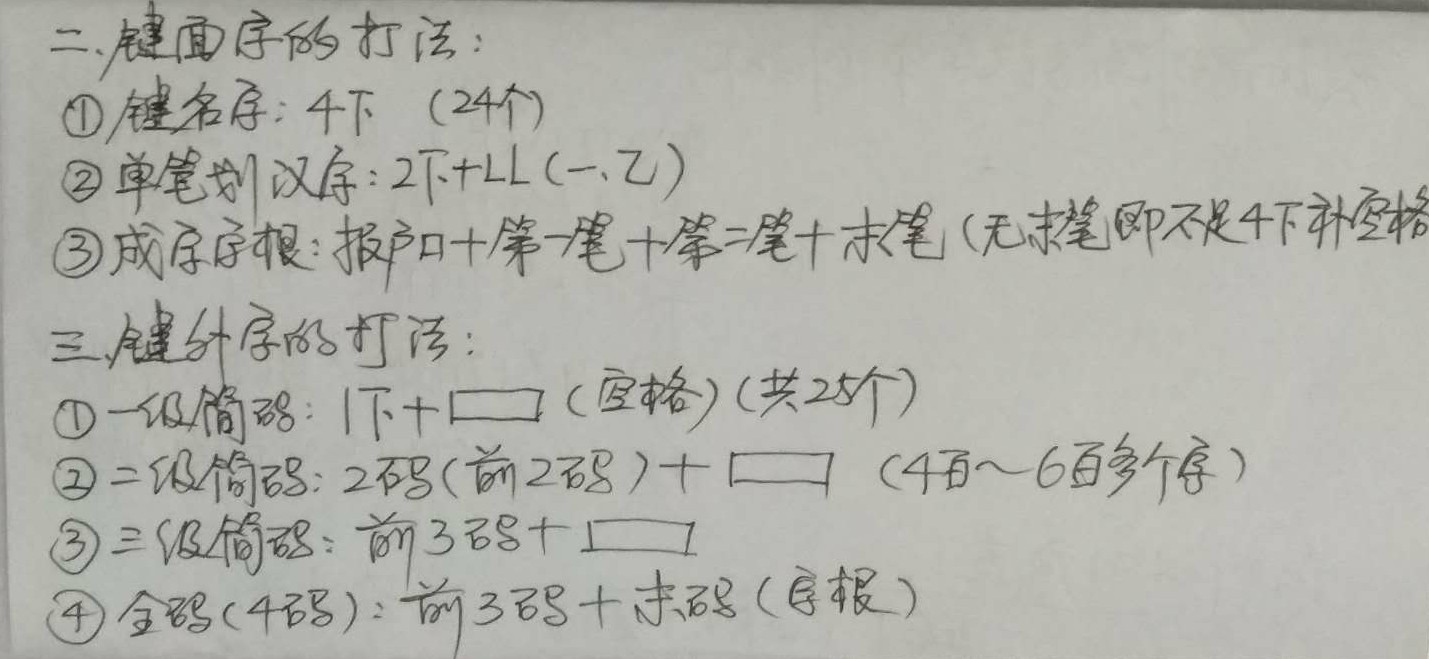 二、键面字的打法:
①键名字: 4下 (24个)
②单笔划汉字: 2下+LL(一、乙)
③成字字根: 报户口+第一笔+第二笔+末笔(无末笔即不足4下补空格
三、键外字的打法:
①一级简码: 1下+▭(空格)(共25个)
②二级简码: 2码(前2码)+▭ (4百~6百多个字)
③三级简码: 前3码+▭
④全码(4码): 前3码+末码(字根)